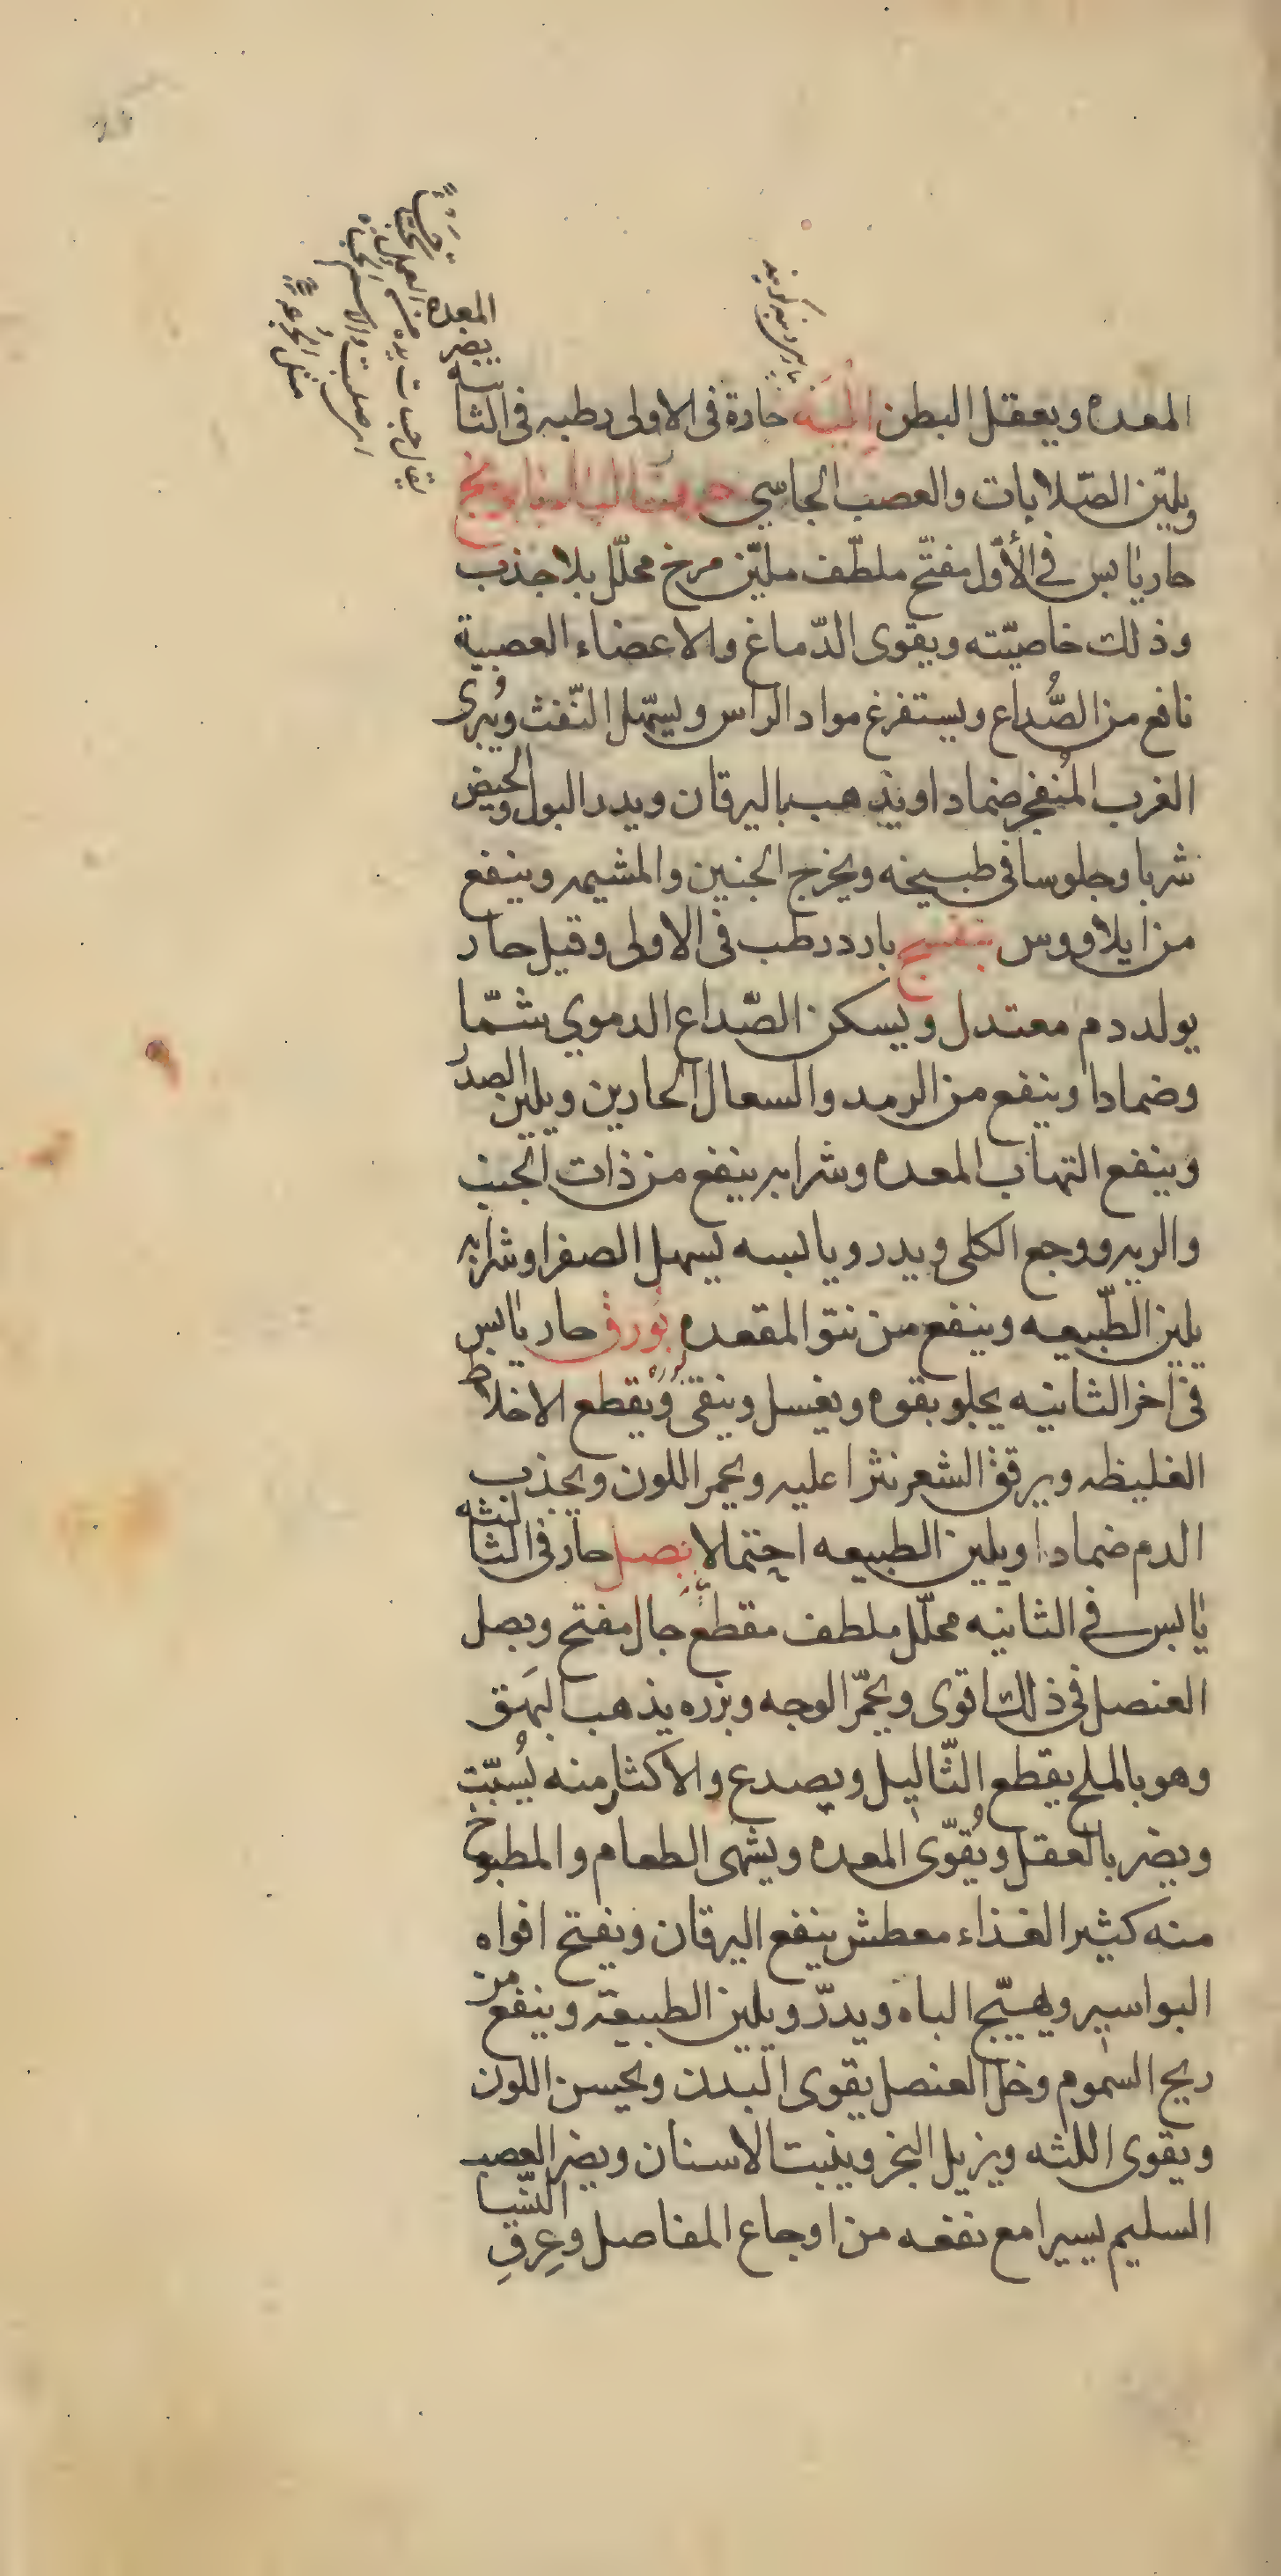 المعده ويعقل البطن اَلْيَـه حارة فى الاولى رطبه فى الثانيه يضر المعده
ويليّن الصّلابات والعصب الجاسي حرف البا بابونج
حار يابس في الأوّل مفتّح ملطّف مليّن مرخ محلّل بلا جذب
وذلك خاصيّته ويقوى الدّماغ والاعضاء العصبية
نافع من الصُّداع ويستفرغ مواد الراس ويسهّل النّفث ويُبرئ
الغرب المُنفجر ضمادا ويذهب باليرقان ويدر البول والحيض
شربا وجلوسا فى طبيخه ويخرج الجنين والمشيمه وينفع
من ايلاووس بنفسج بارد رطب فى الاولى وقيل حار
يولد دم معتدل ويسكن الصّداع الدموي شمّا
وضمادا وينفع من الرمد والسعال الحارين ويلين الصدر
وينفع التهاب المعده وشرابه ينفع من ذات الجنب
والريه ووجع الكلى ويدر ويابسه يسهل الصفرا وشرابه
يلين الطّبيعه وينفع من نتو المقعده بَورق حار يابس
فى اخر الثانيه يجلو بقوه ويغسل وينقى ويقطع الاخلاط
الغليظه ويرقق الشعر نثرا عليه ويحمر اللون ويجذب
الدم ضمادا ويلين الطبيعه احتمالا بصل حار فى الثالثه
يابس في الثانيه محلّل ملطف مقطع جال مفتح وبصل
العنصل فى ذلك اقوى ويحمّر الوجه وبزره يذهب البَهَق
وهو بالملح يقطع الثّاليل ويصدع والاكثار منه يُسبّت
ويضر بالعقل ويُقوّى المعده ويشهى الطعام والمطبوخ
منه كثير الغذاء معطش ينفع اليرقان ويفتح افواه
البواسير ويهيّج الباه ويدرّ ويلين الطبيعة وينفع من
ريح السموم وخل العنصل يقوى البدن ويحسن اللون
ويقوى اللثه ويزيل البخر ويثبت الاسنان ويضر العصب
السليم يسيرا مع نفعه من اوجاع المفاصل وعِرقِ النّسا